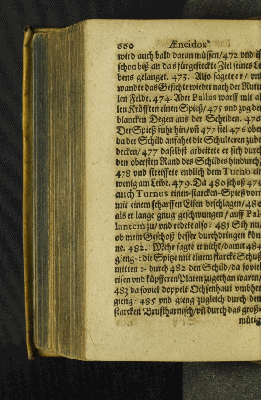 660 Æneidos
wird auch bald daran müssen/ 472 und is
schon biß an das fürgesteckte Ziel seines Le
bens gelanget. 473. Also sagete er/ und
wandte das Gesichte wieder nach der Rutu
len Felde. 474. Aber Pallas warff mit al
len Kräfften einen Spieß/ 475 und zog den
blancken Degen aus der Scheiden. 476
Der Spieß fuhr hin/ uñ 477 fiel 476 oben
da der Schild anfähet die Schulteren zube
decken/ 477 daselbst arbeitete er sich durch
den obersten Rand des Schildes hindurch/
478 und streiffete endlich dem Turno ein
wenig am Leibe. 479. Da 480 schoß 479
auch Turnus einen starcken Spieß vorn
mit einem scharffen Eisen beschlagen/ 480
als er lange gnug geschwungen/ auff Pal-
lantem zu/ und redete also: 481 Sih nu/
ob mein Geschoß besser durchdringen kön
ne. 482. Mehr sagte er nicht/ damit 484
gieng die Spitze mit einem starcken Schuß
mitten durch 482 den Schild/ da soviel
eisen und küpfferen Platen zugethan waren/
483 da soviel doppelt Ochsenhaut umbher
gieng 485 und gieng zugleich durch den
starcken Brustharnisch/ uñ durch das groß-
mütig